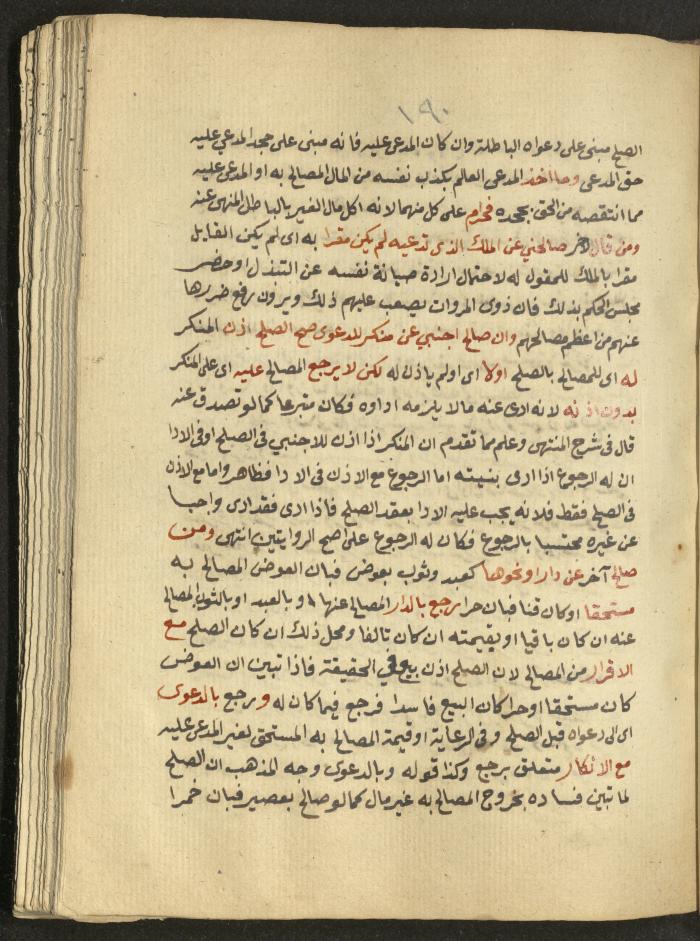 ١٩٠
الصلح مبنى على دعواه الباطلة وان كان المدعى عليه فانه مبنى على جحد المدعي عليه
حق المدعى وما اخذ المدعى العالم بكذب نفسه من المال المصالح به او المدعى عليه
مما انتقصه من الحق بجحده فحرام على كل منهما لانه اكل مال الغير بالباطل المنهى عنه
ومن قال لاخر صالحني عن الملك الذى تدعيه لم يكن مقرا به اى لم يكن القايل
مقرا بالملك للمقول له لاحتمال ارادة صيانة نفسه عن التبذل او حضر
مجلس الحكم بذلك فان ذوى المروات يصعب عليهم ذلك ويرون رفع ضررها
عنهم من اعظم مصالحهم وان صالح اجنبي عن منكر للدعوى صح الصلح اذن المنكر
له اى للمصالح بالصلح اولا اى او لم ياذن له لكن لا يرجع المصالح عليه اى على المنكر
بدون اذنه لانه ادى عنه مالا يلزمه اداوه فكان متبرعا كما لو تصدق عنه
قال فى شرح المنتهى وعلم مما تقدم ان المنكر اذا اذن للاجنبي فى الصلح او فى الادا
ان له الرجوع اذا ادى بنيته اما الرجوع مع الاذن فى الادا فظاهر واما مع الاذن
فى الصلح فقط فلانه يجب عليه الادا بعقد الصلح فاذا ادى فقد ادى واجبا
عن غيره محتسبا بالرجوع فكان له الرجوع على اصح الروايتين انتهى ومن
صالح آخر عن دار او نحوها كعبد وثوب بعوض فبان العوض المصالح به
مستحقا او كان قنا فبان حرا رجع بالدار المصالح عنها او بالعبد او بالثوب المصالح
عنه ان كان باقيا او بقيمته ان كان تالفا ومحل ذلك ان كان الصلح مع
الاقرار من المصالح لان الصلح اذن بيع في الحقيقة فاذا تبين ان العوض
كان مستحقا او حرا كان البيع فاسدا فرجع فيما كان له ورجع بالدعوى
اى الى دعواه قبل الصلح وفى الرعاية او قيمة المصالح به المستحق لغير المدعى عليه
مع الانكار متعلق برجع وكذا قوله وبالدعوى وجه المذهب ان الصلح
لما تبين فساده بخروج المصالح به غير مال كما لو صالح بعصير فبان خمرا